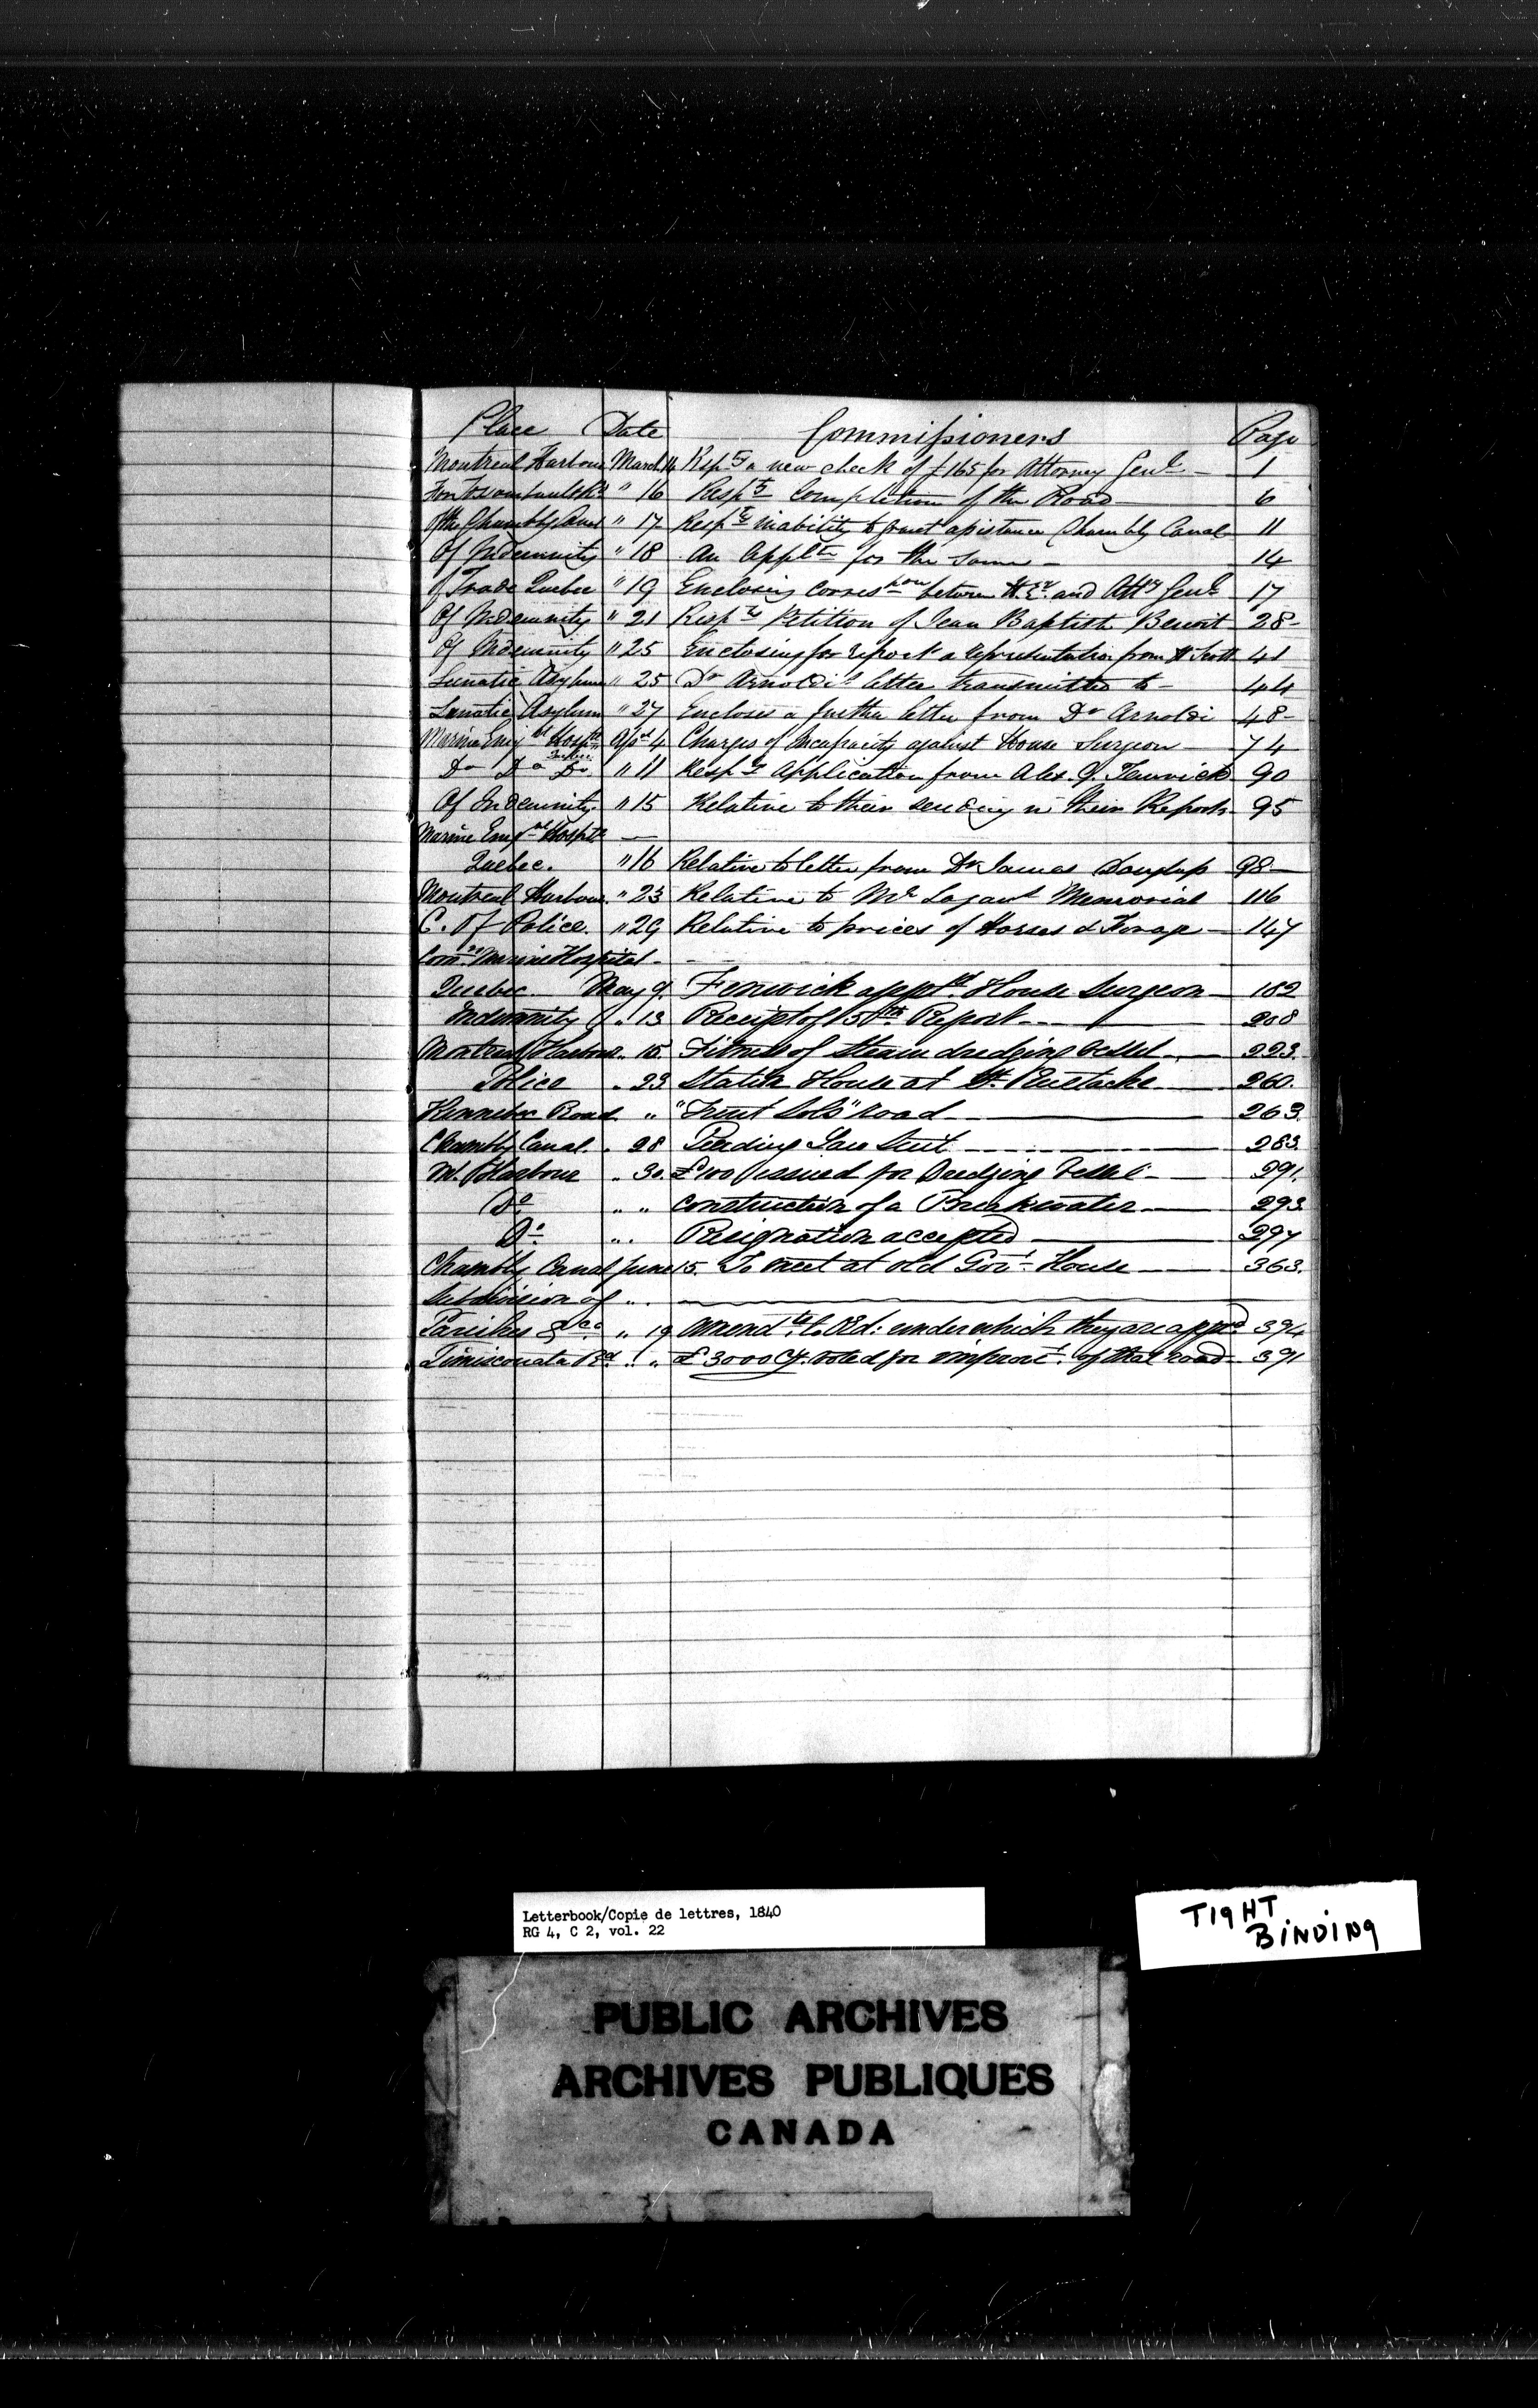 Place Date Commissioners Page
Montreal Harbour March 14 Respg a new check of £165 for Attorney Genl 1
" 16 Respg Completion of the Road 6
Of the Chambly Canal " 17 Respg inability to grant assistance Chambly Canal 11
Of Indemnity " 18 An Appltn for the same 14
Of Trade Quebec " 19 Enclosing correshon between and Atty Genl 17
Of Indemnity " 21 Respg Petition of Jean Baptiste Benoit 28
Of Indemnity " 25 Enclosing for report a representation from Scott 41
Lunatic Asylum " 25 Dr Arnoldi's letter transmitted to 44
Lunatic Asylum " 27 Encloses a further letter from Dr Arnoldi 48
Marine Emigt Hospl Aprl 4 Charges of Incapacity against House Surgeon 74
Do Do Do Quebec " 11 Respg Application from Alex. G. Fenwick 90
Of Indemnity " 15 Relative to their sending in their Reports 95
Marine Emigt Hospitl
Quebec. " 16 Relative to letter from Dr James Douglas 98
Montreal Harbour " 23 Relative to Mr Memorial 116
C. Of Police. " 29 Relative to prices of Horses & Forage 147
Comrs Marine Hospital
Quebec May 9. Fenwick apptd House Surgeon 182
Indemnity " 13 Receipt of 150th Report 208
Montreal Harbour " 15. Fitness of steam dredging vessel 223.
Police " 23 Station House at St. Eustache 260.
Kennebec Road " " road 263.
Chambly Canal. " 28 Pending Law Suit 283.
M. Harbour " 30. £100 issued for Dredging Vessel 291.
Do " " construction of a Breakwater 293
Do " " Resignation accepted 297
Chambly Canal June 15. To meet at old Govt House 363.
Subdivision of " "
Parishes &ca " 19 Amendt to Od: under which they are apptd 394
Timiscouata Rd " " £3000 Cy. voted for improvt of that road 391
Letterbook/Copie de lettres, 1840
RG 4, C 2, vol. 22
TIGHT
BINDING
PUBLIC ARCHIVES
ARCHIVES PUBLIQUES
CANADA